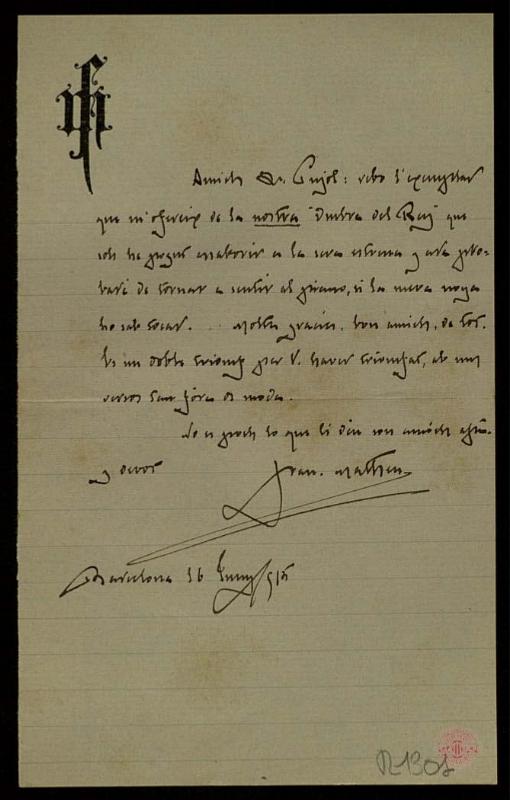 Amich Sr. Pujol: rebo l'exemplar
que m'ofereix de la nostra "Ombra del Bruj" que
ha pogut a la seva estrena y ara
de tornar a sentir al piano, si la meva noya
ho sab tocar. . . Moltes gracies, bon amich, de tot.
Es un doble triomf per V. haver triomfat, ab uns
versos tan fora de moda.
No es poch lo que li diu son amich afm.
y devot Fran. Matheu
Barcelona 16 Juny 915
R-1301